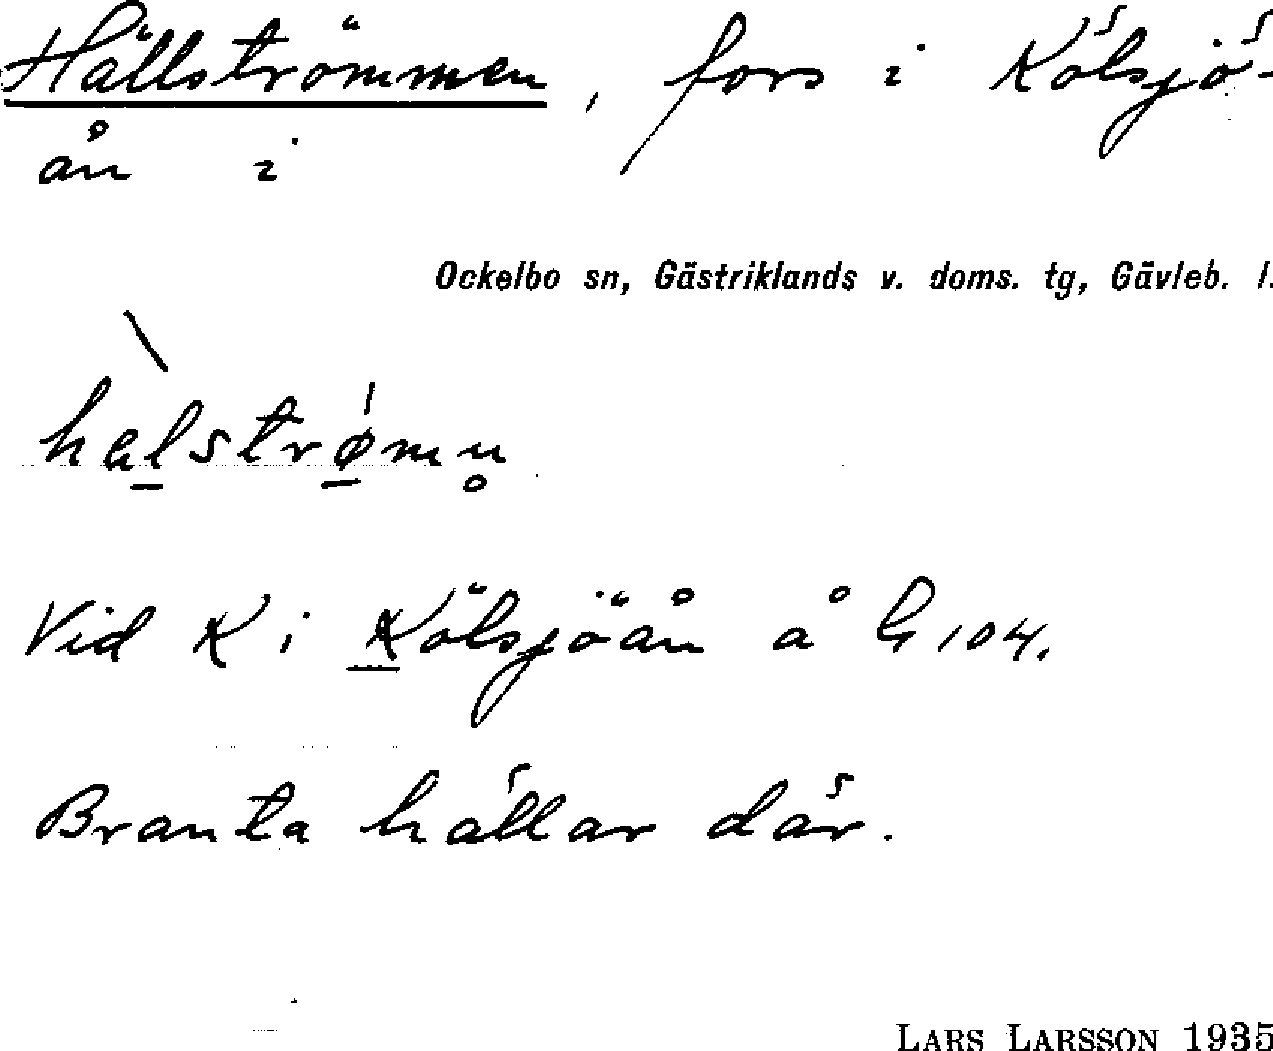 Hällströmmen, fors i Kölsjö-
ån i
Ockelbo sn, Gästriklands v. doms. tg, Gävleb. l.
Vid K i Kölsjöån å G 104.
Branta hällar där.
LARS LARSSON 1935